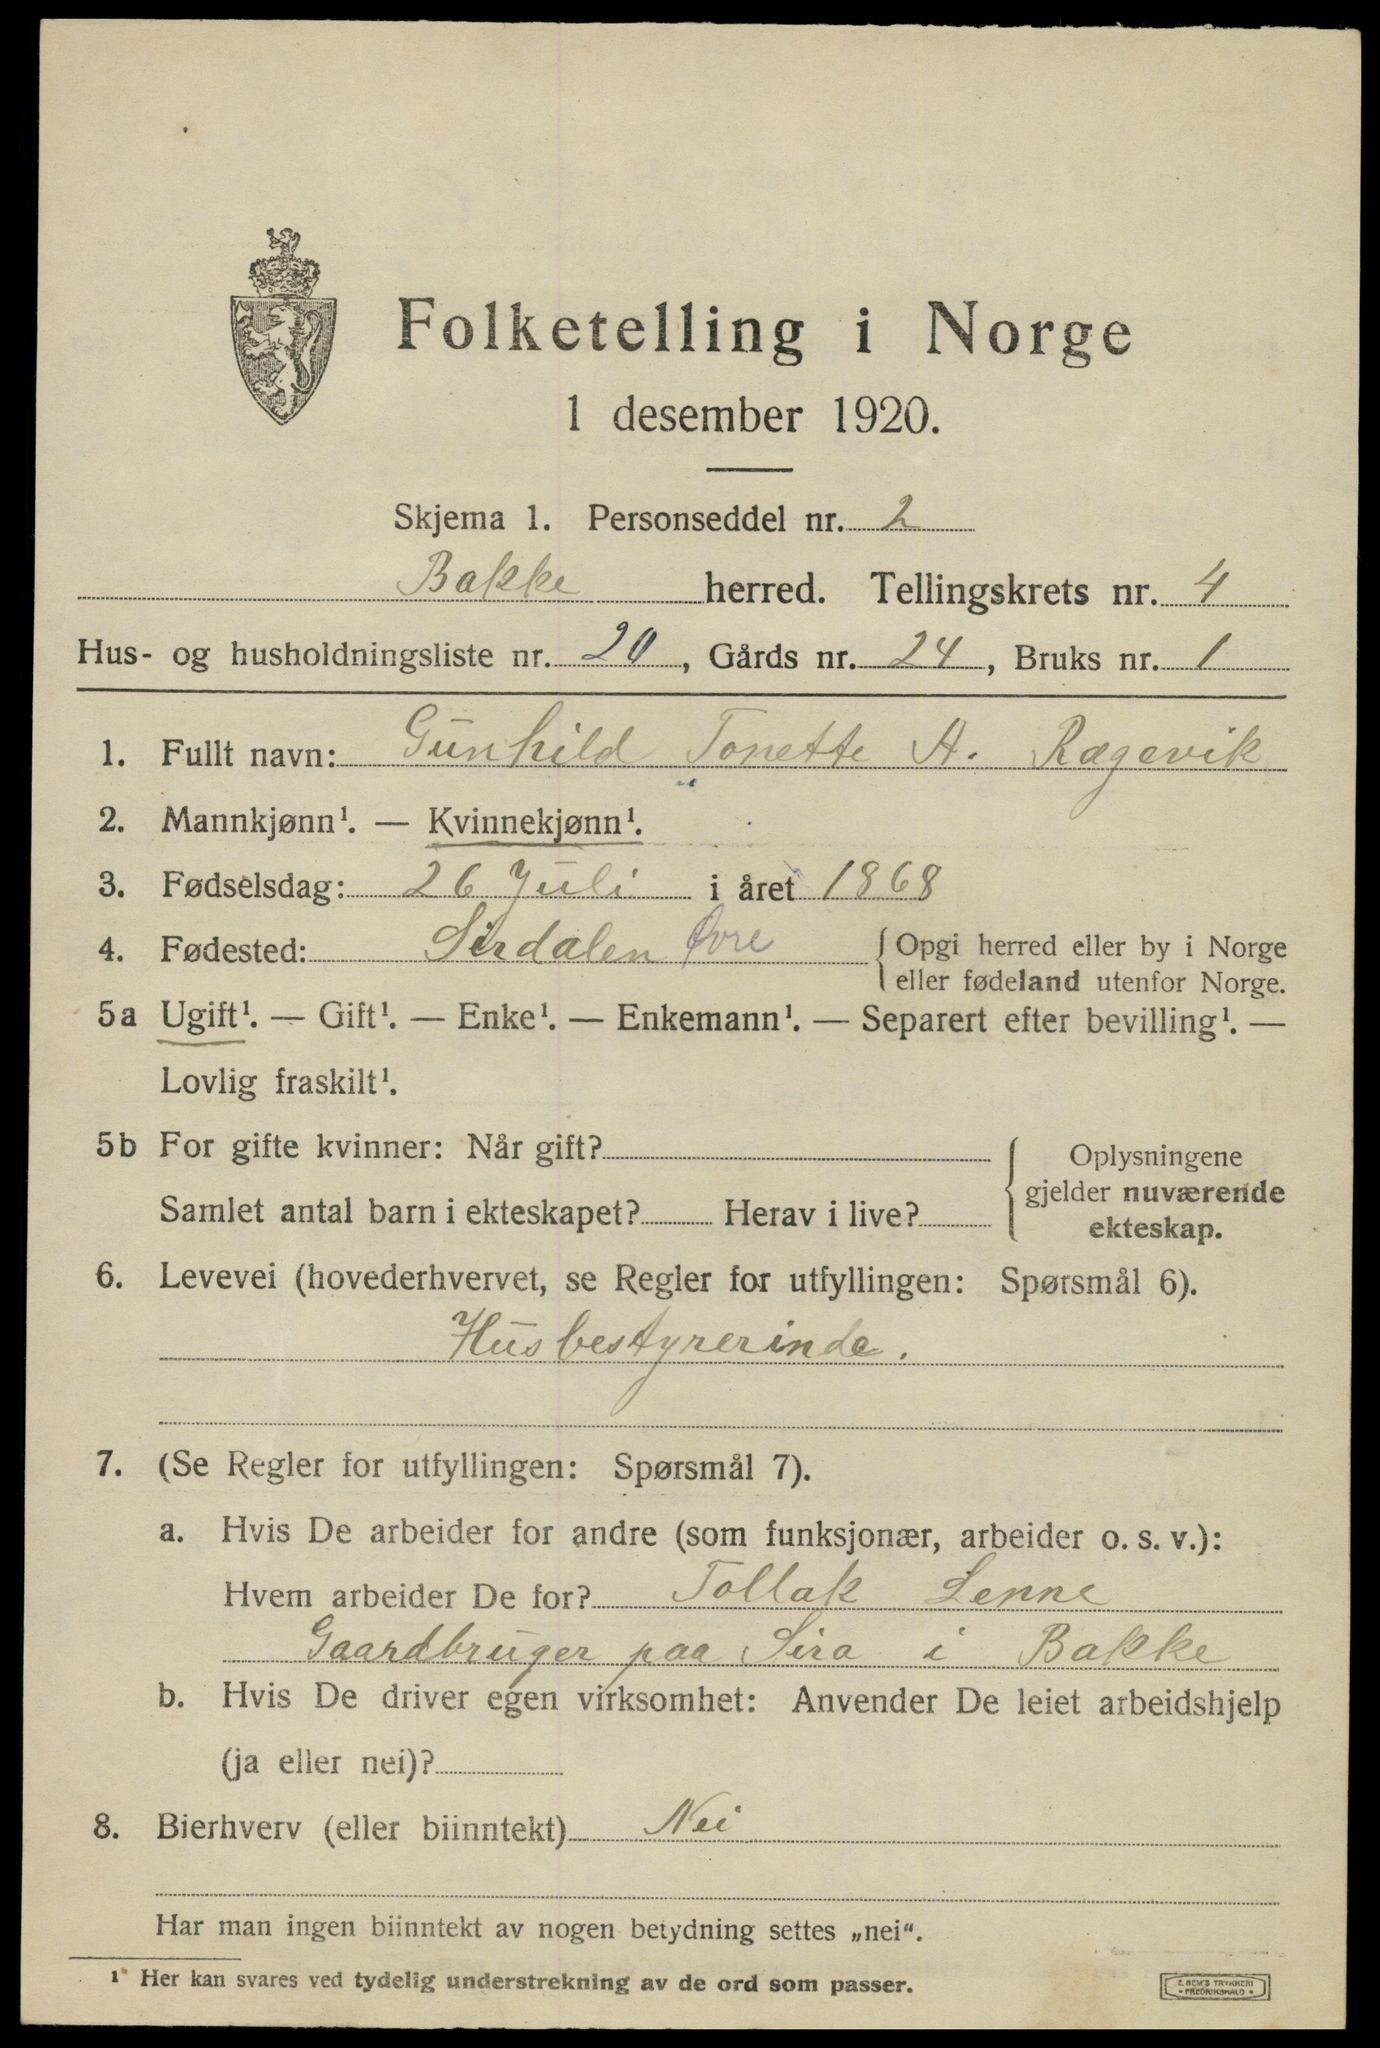 Folketelling i Norge
1 desember 1920.
Skjema 1. Personseddel nr. 2
Bakke herred. Tellingskrets nr. 4
Hus- og husholdningsliste nr. 20, Gårds nr. 24, Bruks nr. 1
1. Fullt navn: Gunhild Tonette A. Rægevik
2. Mannkjønn¹. — Kvinnekjønn¹.
3. Fødselsdag: 26 Juli i året 1868
4. Fødested: Sirdalen Øvre {Opgi herred eller by i Norge
eller fødeland utenfor Norge.
5a Ugift¹. — Gift¹. — Enke¹. — Enkemann¹. — Separert efter bevilling¹. —
Lovlig fraskilt¹.
5b For gifte kvinner: Når gift?
Samlet antal barn i ekteskapet? Herav i live?
Oplysningene
gjelder nuværende
ekteskap.
6. Levevei (hovederhvervet, se Regler for utfyllingen: Spørsmål 6).
Husbestyrerinde.
7. (Se Regler for utfyllingen: Spørsmål 7).
a. Hvis De arbeider for andre (som funksjonær, arbeider o. s. v.):
Hvem arbeider De for? Tollak Lenne
Gaardbruger paa Sira i Bakke
b. Hvis De driver egen virksomhet: Anvender De leiet arbeidshjelp
(ja eller nei)?
8. Bierhverv (eller biinntekt) Nei
Har man ingen biinntekt av nogen betydning settes „nei“.
¹ Her kan svares ved tydelig understrekning av de ord som passer.
E. SEM'S TRYKKERI
FREDRIKSHALD